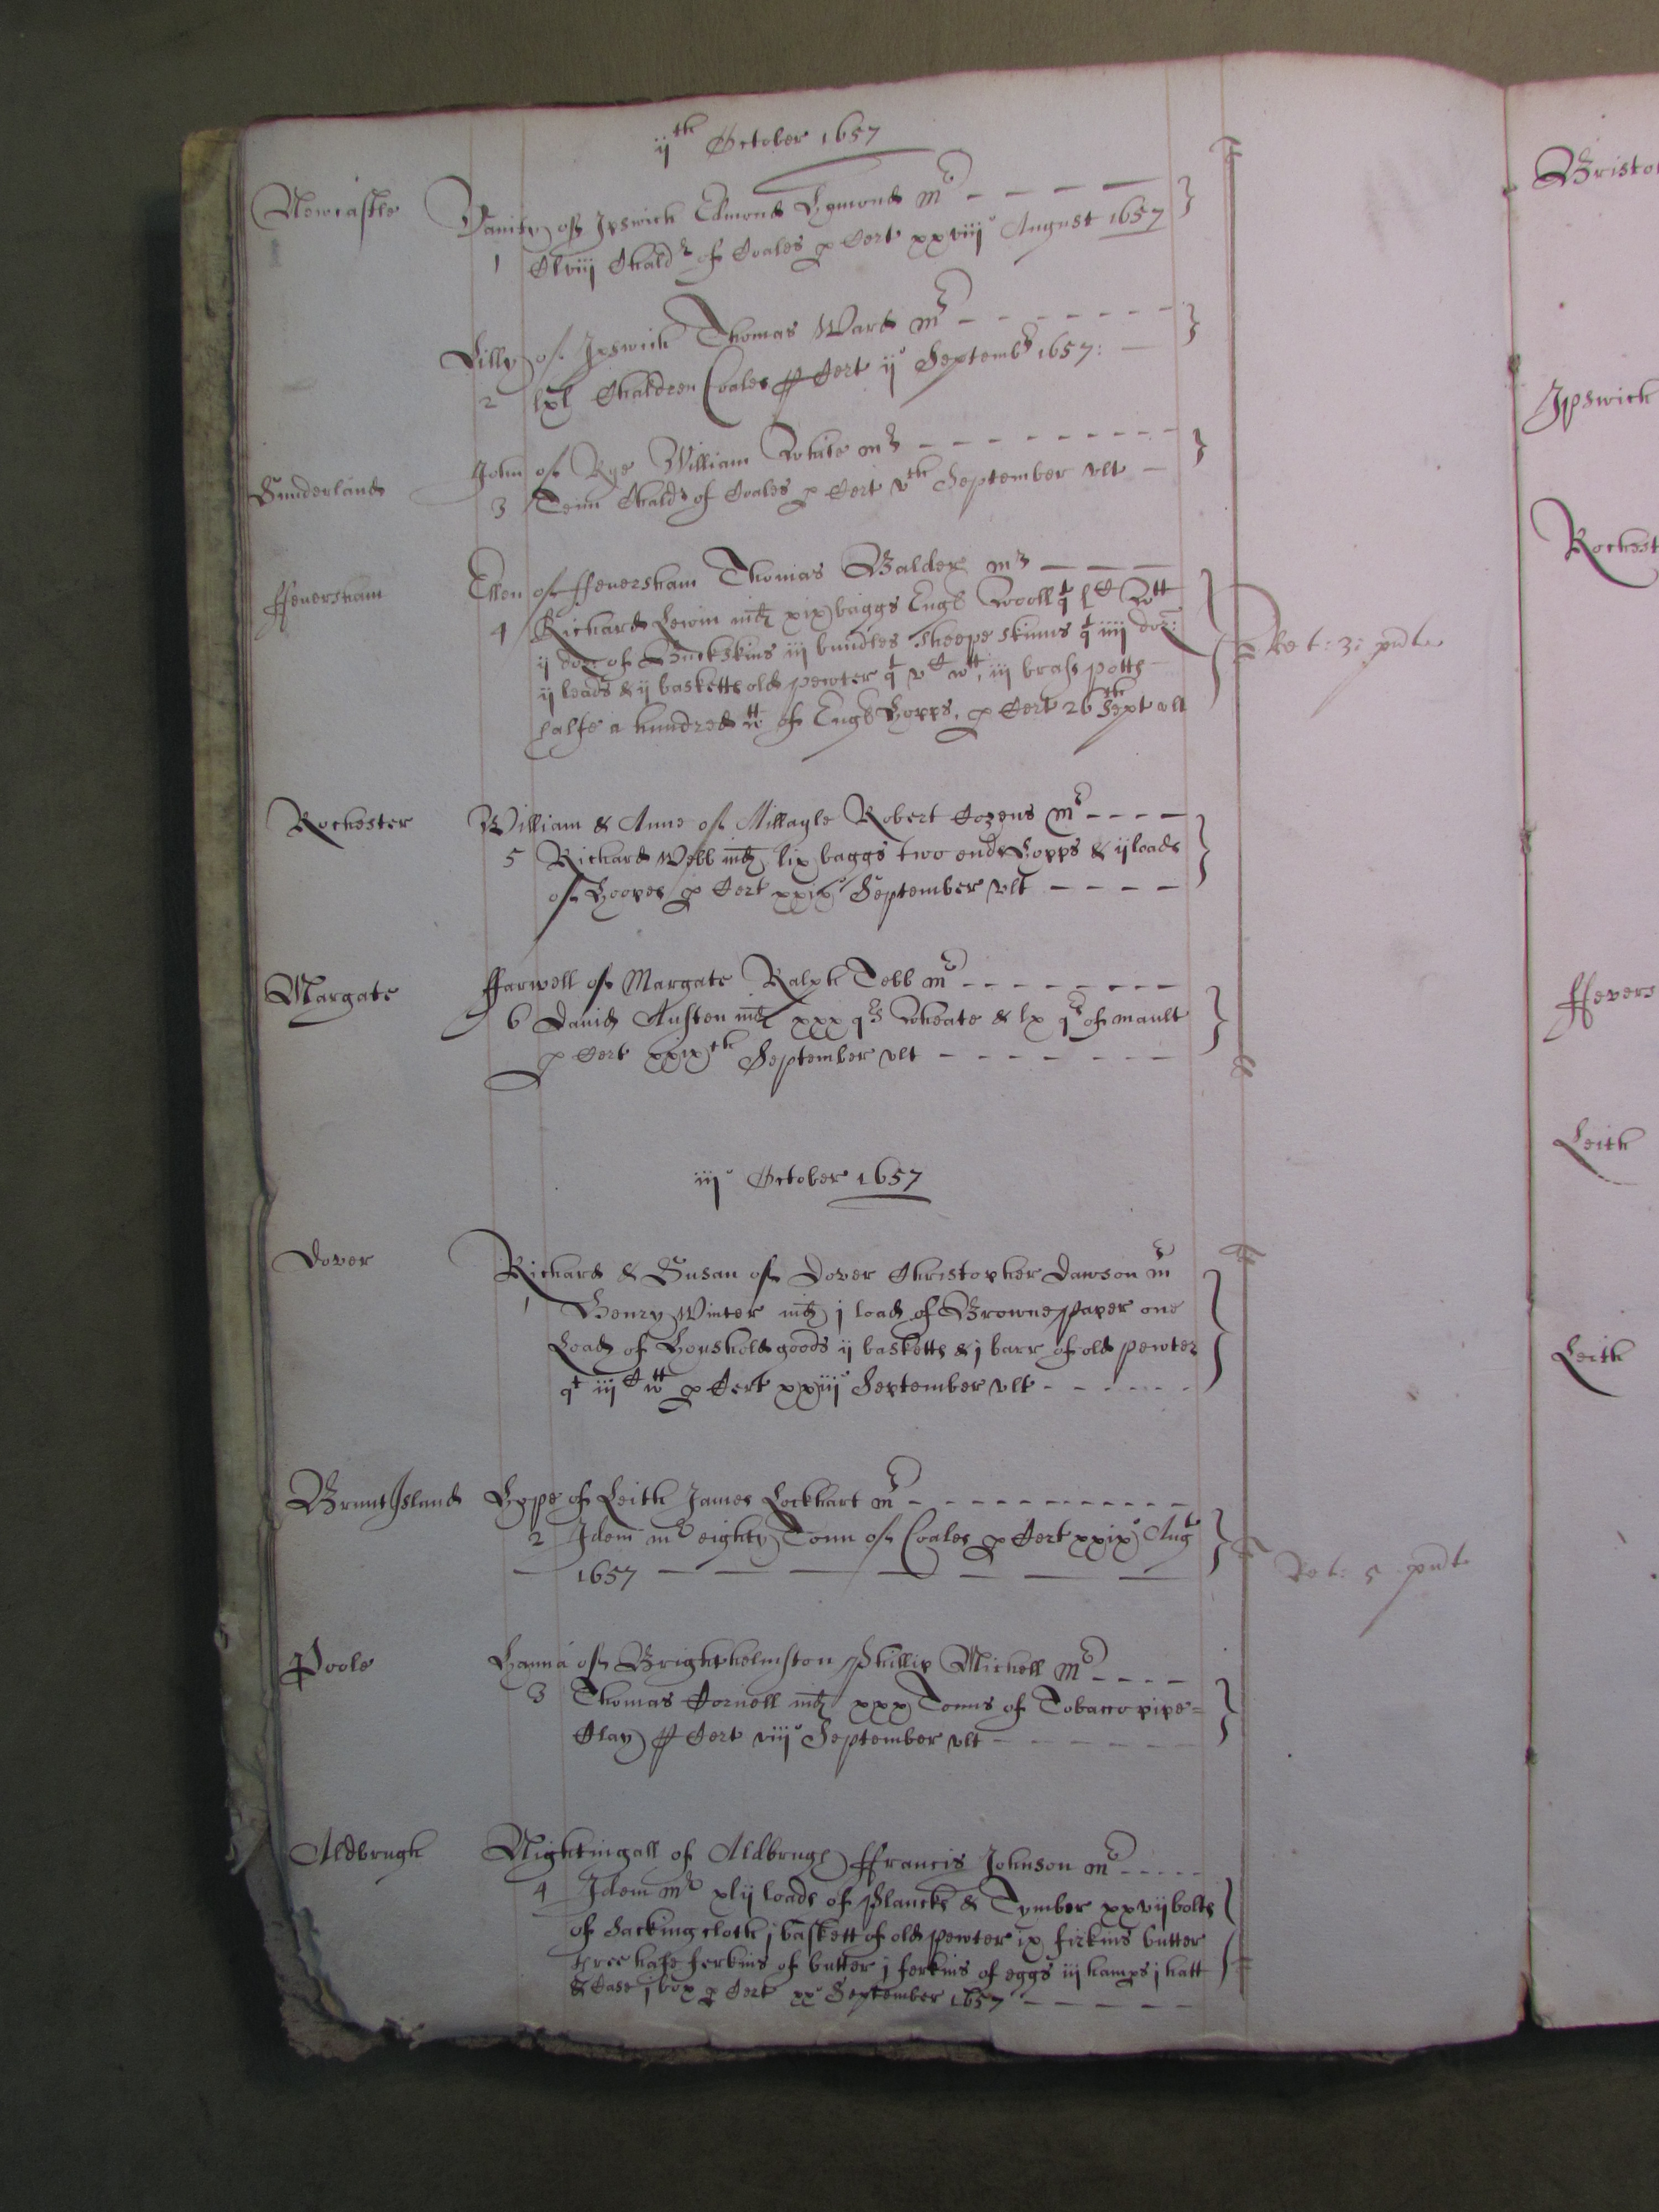 ijth October 1657
Newcastle Vanity of Ipswich Edmond Hamond mr
1 Clviij Chaldr of Coales p Cert xxviijo August 1657
Lilly of Ipswich Thomas Ward mr
2 lxl Chaldren Coales p Cert ijo Septembr 1657:
Sunderland John of Rye William White mr
3 Tenn Chaldr of Coales p Cert vth September ult
ffeuersham Ellen of ffeuersham Thomas Balder mr
4 Richard Lewin mt xix baggs Engs Wooll qt lC Wtt
ij doz of Buckskins iij bundles sheepe skinns qt iiij doz:
ij loads & ij basketts old pewter qt vC wtt, iij brass potts
halfe a hundred wtt of Engs Hopps, p Cert 26th Sept ult
Ret: 3: pndt
Rochester William & Anne of Millayle Robert Cozens mr
5 Richard Webb mt lix baggs two ends Hopps & ij loads
of Hoopes p Cert xxixo September ult
Margate ffarwell of Margate Ralph Tebb mr
6 David Austen mt xxx qrs Wheate & lx qrs of mault
p Cert xxixth September ult
iijo October 1657
Dover Richard & Susan of Dover Christopher Dawson mr
1 Henry Winter mt j load of Browne paper one
Load of Houshold goods ij basketts & j barr of old pewter
qt iijC wtt p Cert xxiijo September ult
Brunt Island Hope of Leith James Lockhart mr
2 Idem mr eighty Tonn of Coales p Cert xxixo Augt
1657
Ret: 5 pndt
Poole Hanna of Brighthelmston Phillip Michell mr
3 Thomas Cornell mt xxx Tonns of Tobacco pipe=
Clay p Cert viijo September ult
Aldbrugh Nightingall of Aldbrugh ffrancis Johnson mr
4 Idem mr xlij loads of Plancks & Tymber xxvij bolts
of Sacking cloth j baskett of old pewter ix firkins butter
three hafe ferkins of butter j ferkins of eggs iij hamps j hatt
& Case j box p Cert xxo September 1657
Bristol
Ipswich
Rochest
ffevers
Leith
Leith